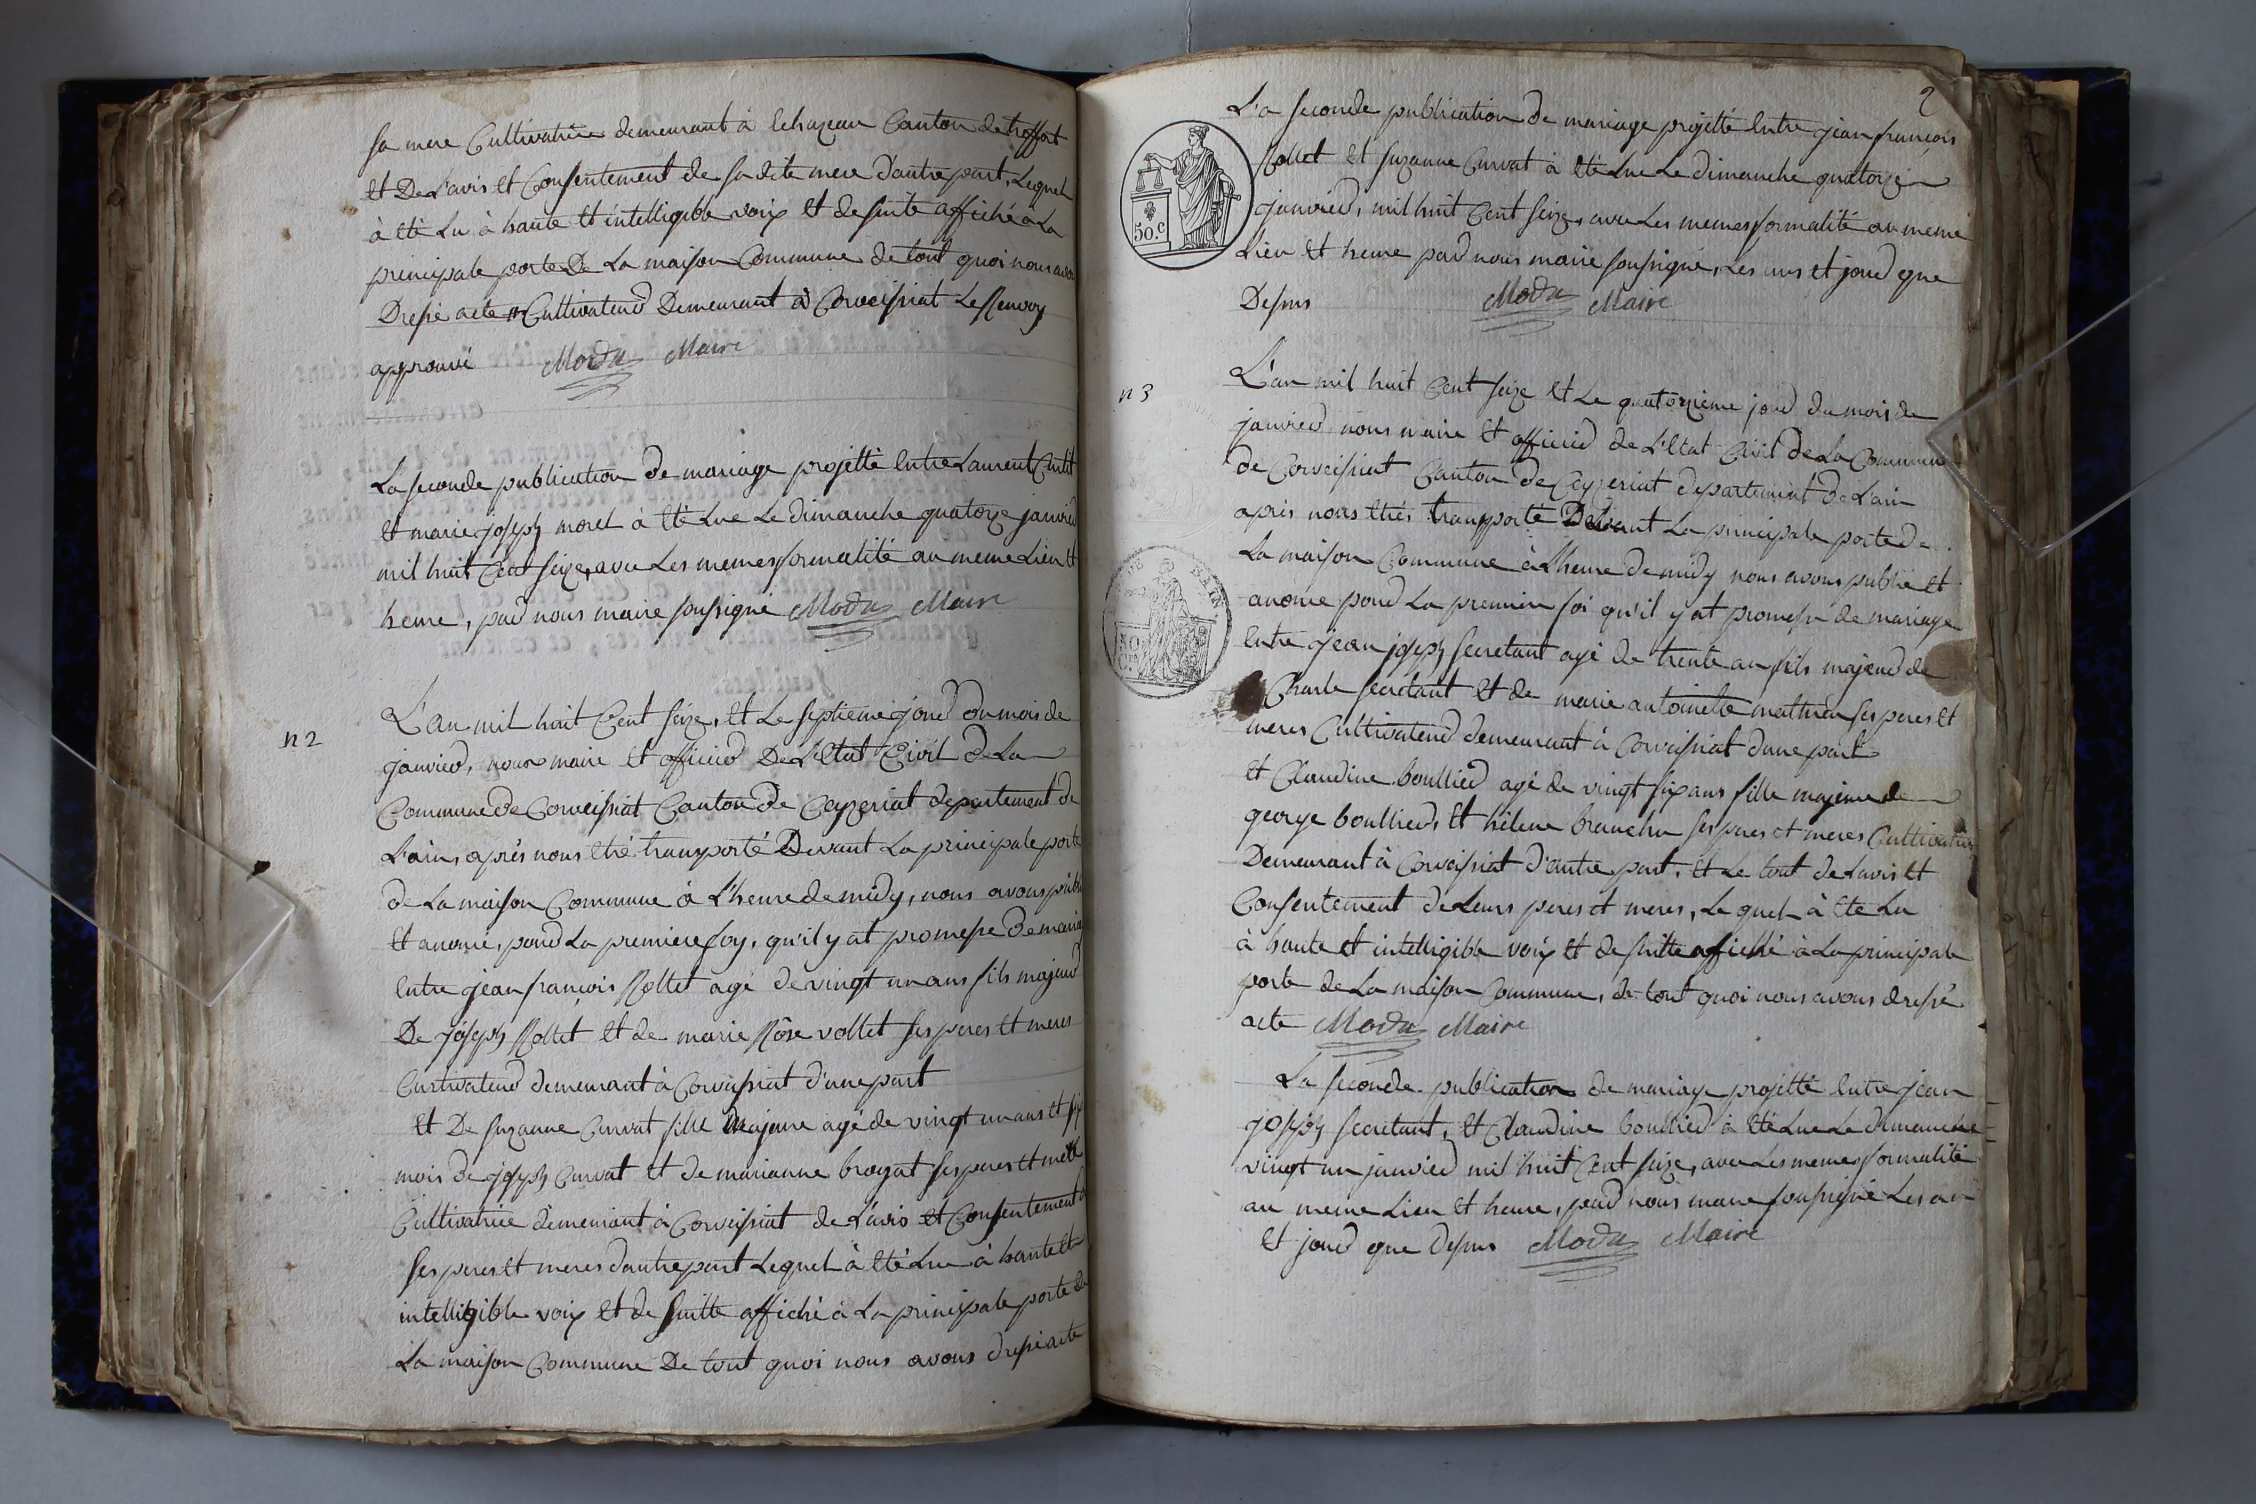 sa mere Cultivatrice demeurant à Echazeau Canton de treffort
et De L'avis et Consentement de sa dite mere d'autre part, Lequel
à eté Lu à haute et intelligible voix et de suite affiché à La
principale porte De La maison Commune de tout quoi nous avons
Dressé acte # Cultivateur Demeurant à Corveissiat Le Renvoy
approuvé Moda Maire
La seconde publication de mariage projetté entre Laurent Curtit
et marie joseph morel à eté Lue Le dimanche quatorze janvier
mil huit Cent seize, avec Les memes formalité au meme Lieu et
heure, par nous maire soussigné Moda Maire
n 2
L'an mil huit Cent seize, et Le septieme jour du mois de
janvier, nous maire et officier De L'Etat Civil de La
Commune de Corveissiat Canton de Ceyzeriat departement de
L'ain, après nous etre transporté Devant La principale porte
de La maison Commune à L'heure de midy, nous avons publié
et anoncé, pour La premiere foy, qu'il y at promesse de mariage
entre jean françois Rollet agé de vingt un ans fils majeur
De joseph Rollet et de marie Rose vollet ses peres et meres
Cultivateur demeurant à Corveissiat d'une part
et De Suzanne Curvat fille Majeure agé de vingt un ans et six
mois de joseph Curvat et de marianne broyat ses peres et mere
Cultivatrice demeurant à Corveissiat de L'avis et Consentement de
ses peres et meres d'autre part Lequel à eté Lue à haute et
intelligible voix et de suitte affiché à La principale porte de
La maison Commune De tout quoi nous avons dressé acte
2
L'a seconde publication de mariage projetté entre jean françois
Rollet et Suzanne Curvat à eté Lue Le dimanche quatorze
janvier, mil huit Cent seize, avec Les memes formalité au meme
Lieu et heure par nous maire soussigné, Les ans et jour que
Dessus Moda Maire
50.C
n 3
L'an mil huit Cent seize et Le quatorzieme jour du mois de
janvier nous maire et officier de L'Etat Civil de La Commune
de Corveissiat Canton de Ceyzeriat departement de L'ain
après nous etres transporté Devant La principale porte de
La maison Commune à L'heure de midy nous avons publié et
anonce pour La premier foi qu'il y at promesse de mariage
entre jean joseph Secretant agé de trente an fils majeur de
Charle Secretant et de marie antoinette mathieu ses peres et
meres Cultivateur demeurant à Corveissiat d'une part
et Claudine boullier agé de vingt six ans fille majeure de
george boulliers et hélene branchu ses peres et meres Cultivateur
Demeurant à Corveissiat d'autre part, et Le tout de L'avis et
Consentement de Leurs peres et meres, Le quel à ete Lu
à haute et intelligible voix et de suitte affiché à La principale
porte de La maison Commune, de tout quoi nous avons dressé
acte Moda Maire
La seconde publication de mariage projetté entre jean
joseph Secretant, et Claudine boullier à eté Lue Le dimanche
vingt un janvier mil huit Cent seize, avec Les memes formalité
au meme Lieu et heure, par nous maire soussigné Les an
et jour que dessus Moda Maire